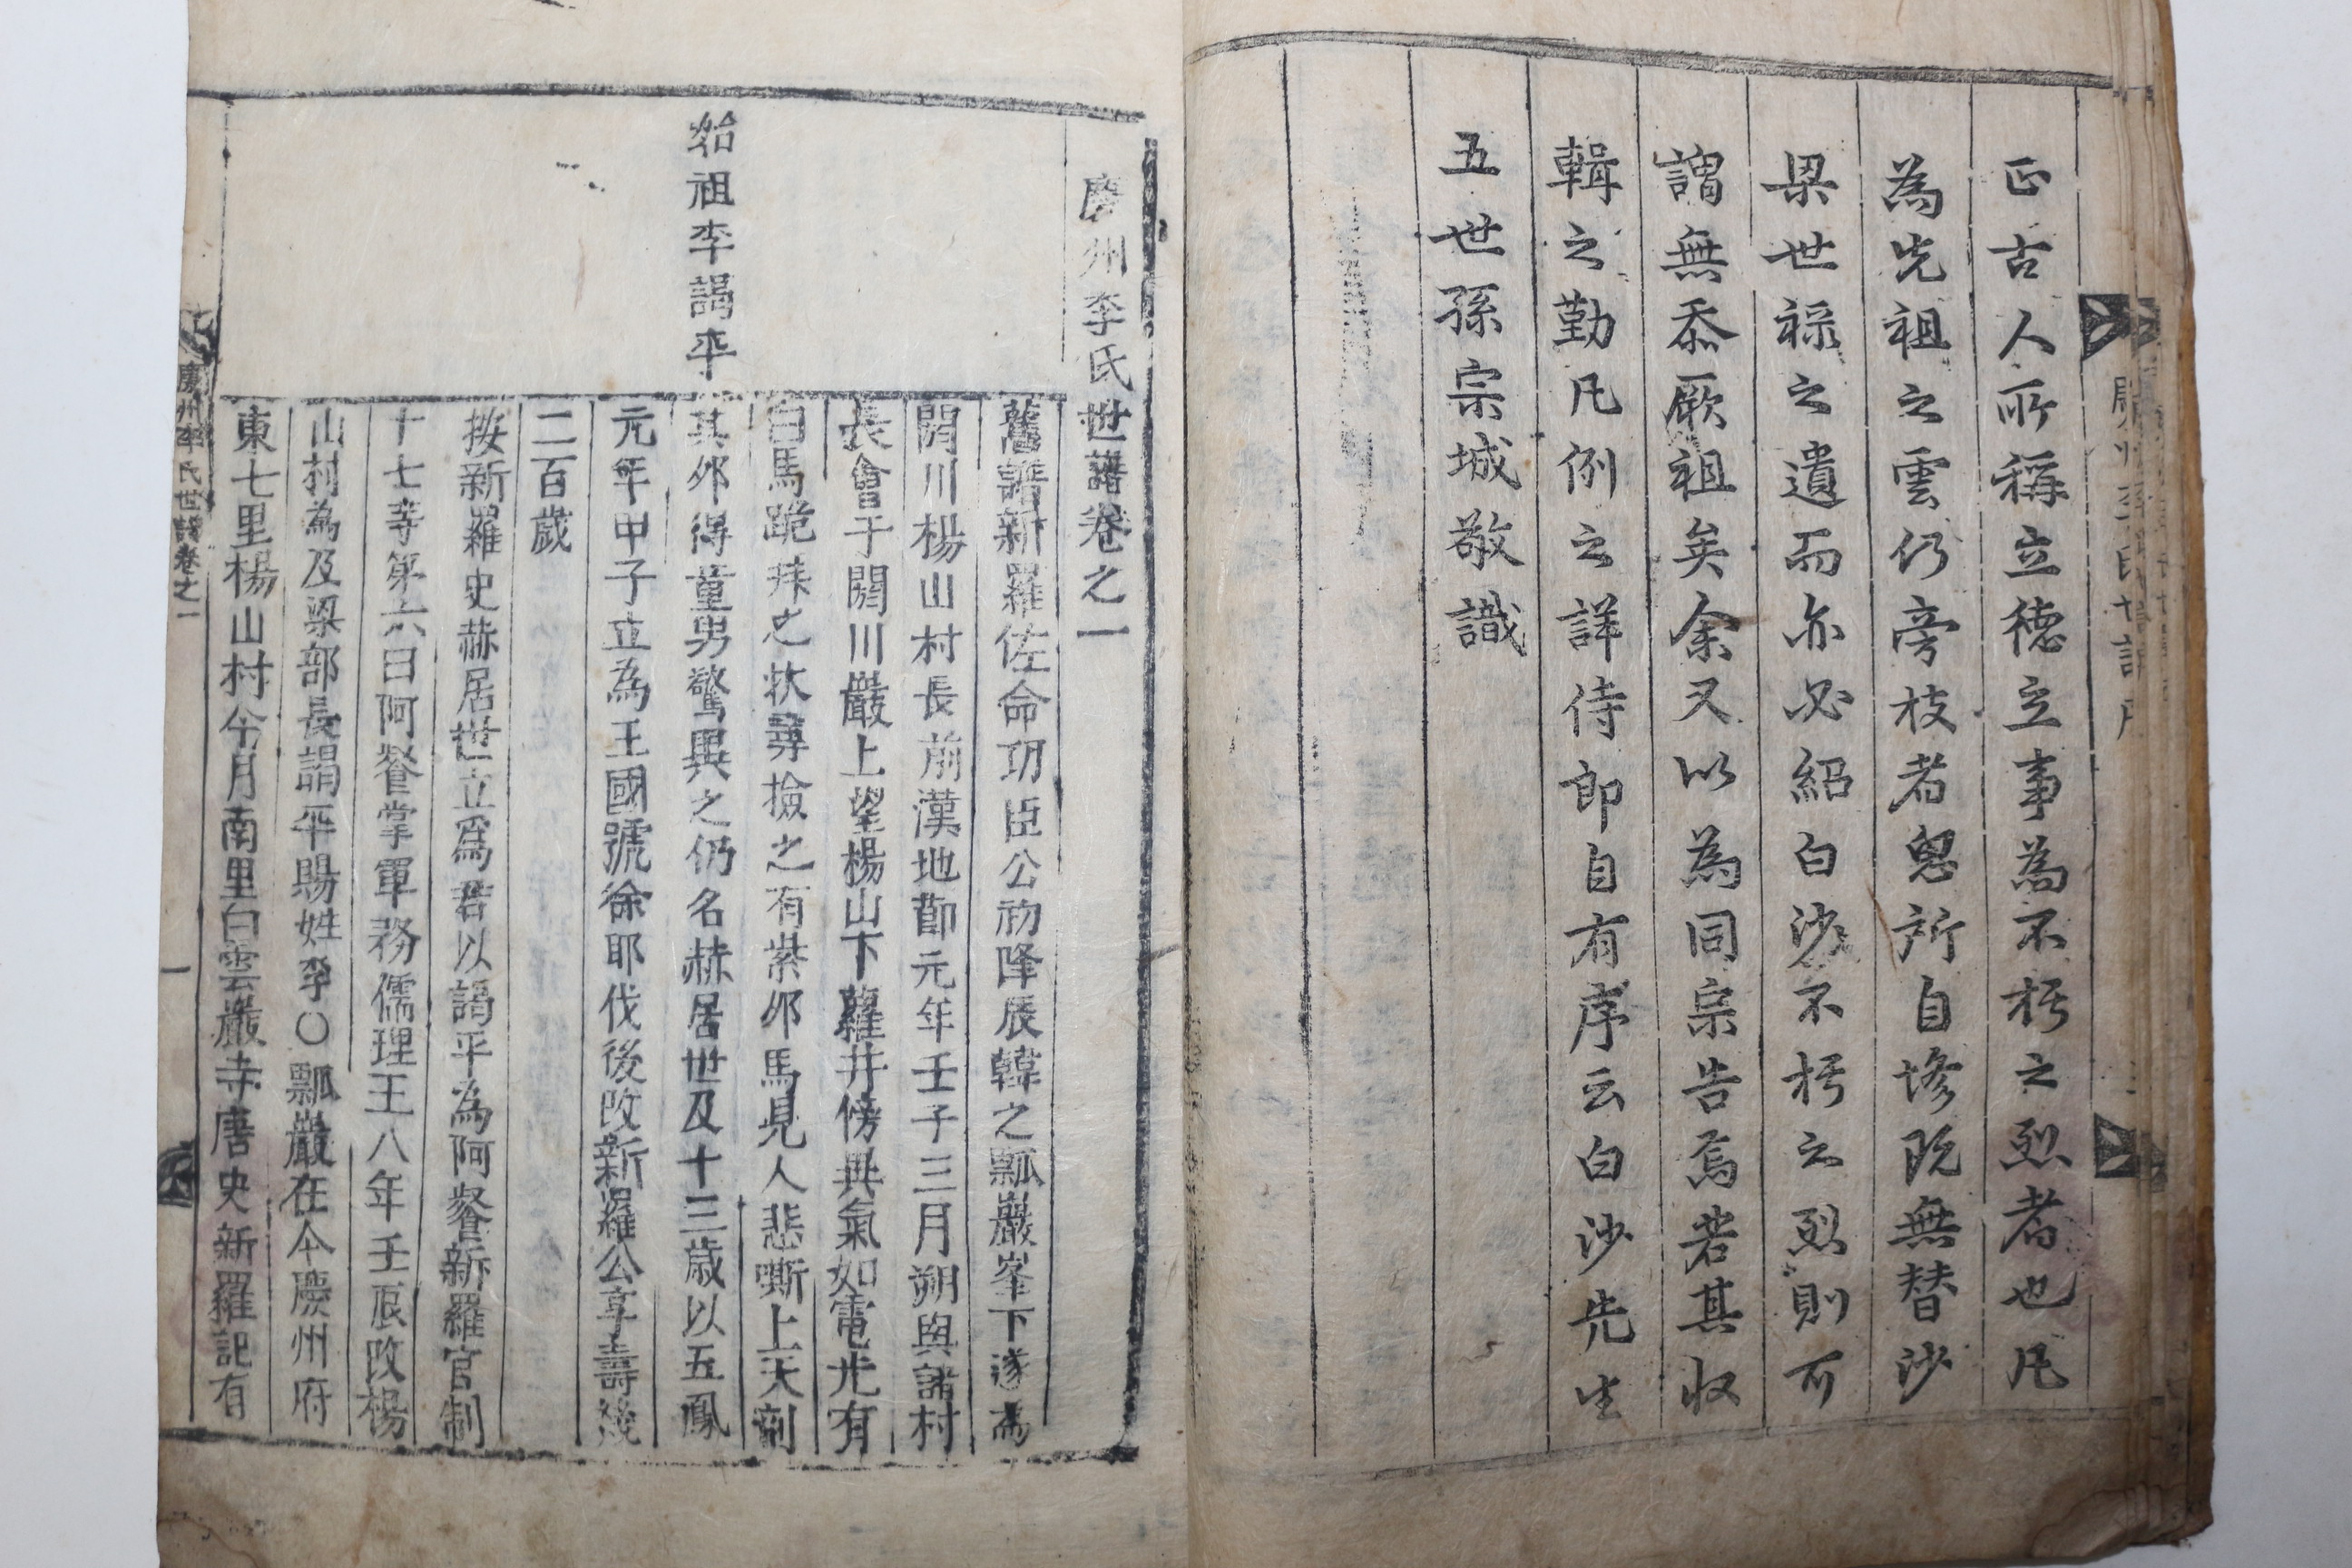 正古人所稱立德立事爲不朽之烈者也凡
爲先祖之雲仍旁枝者思所自慘旣無替沙
梁世祿之遺而亦必紹白沙不朽之烈則可
謂無忝厥祖矣余又以爲同宗告焉若其收
輯之勤凡例之詳侍郎自有序云白沙先生
五世孫宗城敬識
慶州李氏世譜卷之一
舊譜新羅佐命功臣公初降辰韓之瓢巖峯下遂爲
閼川楊山村長前漢地節元年壬子三月朔與諸村
長會于閼川巖上望楊山下蘿井傍異氣如電光有
白馬跪拜之狀尋撿之有紫卵馬見人悲嘶上天剖
始祖李謁平
其卵得童男驚異之仍名赫居世及十三歲以五鳳
元年甲子立爲王國號徐耶伐後改新羅公享壽幾
二百歲
按新羅史赫居世立爲君以謁平爲阿餐新羅官制
十七等第六曰阿餐掌軍務儒理王八年壬辰改楊
山村爲及梁部長謁平賜姓李○瓢巖在今慶州府
東七里楊山村今月南里白雲巖寺唐史新羅記有
慶州李氏世譜卷之一
一